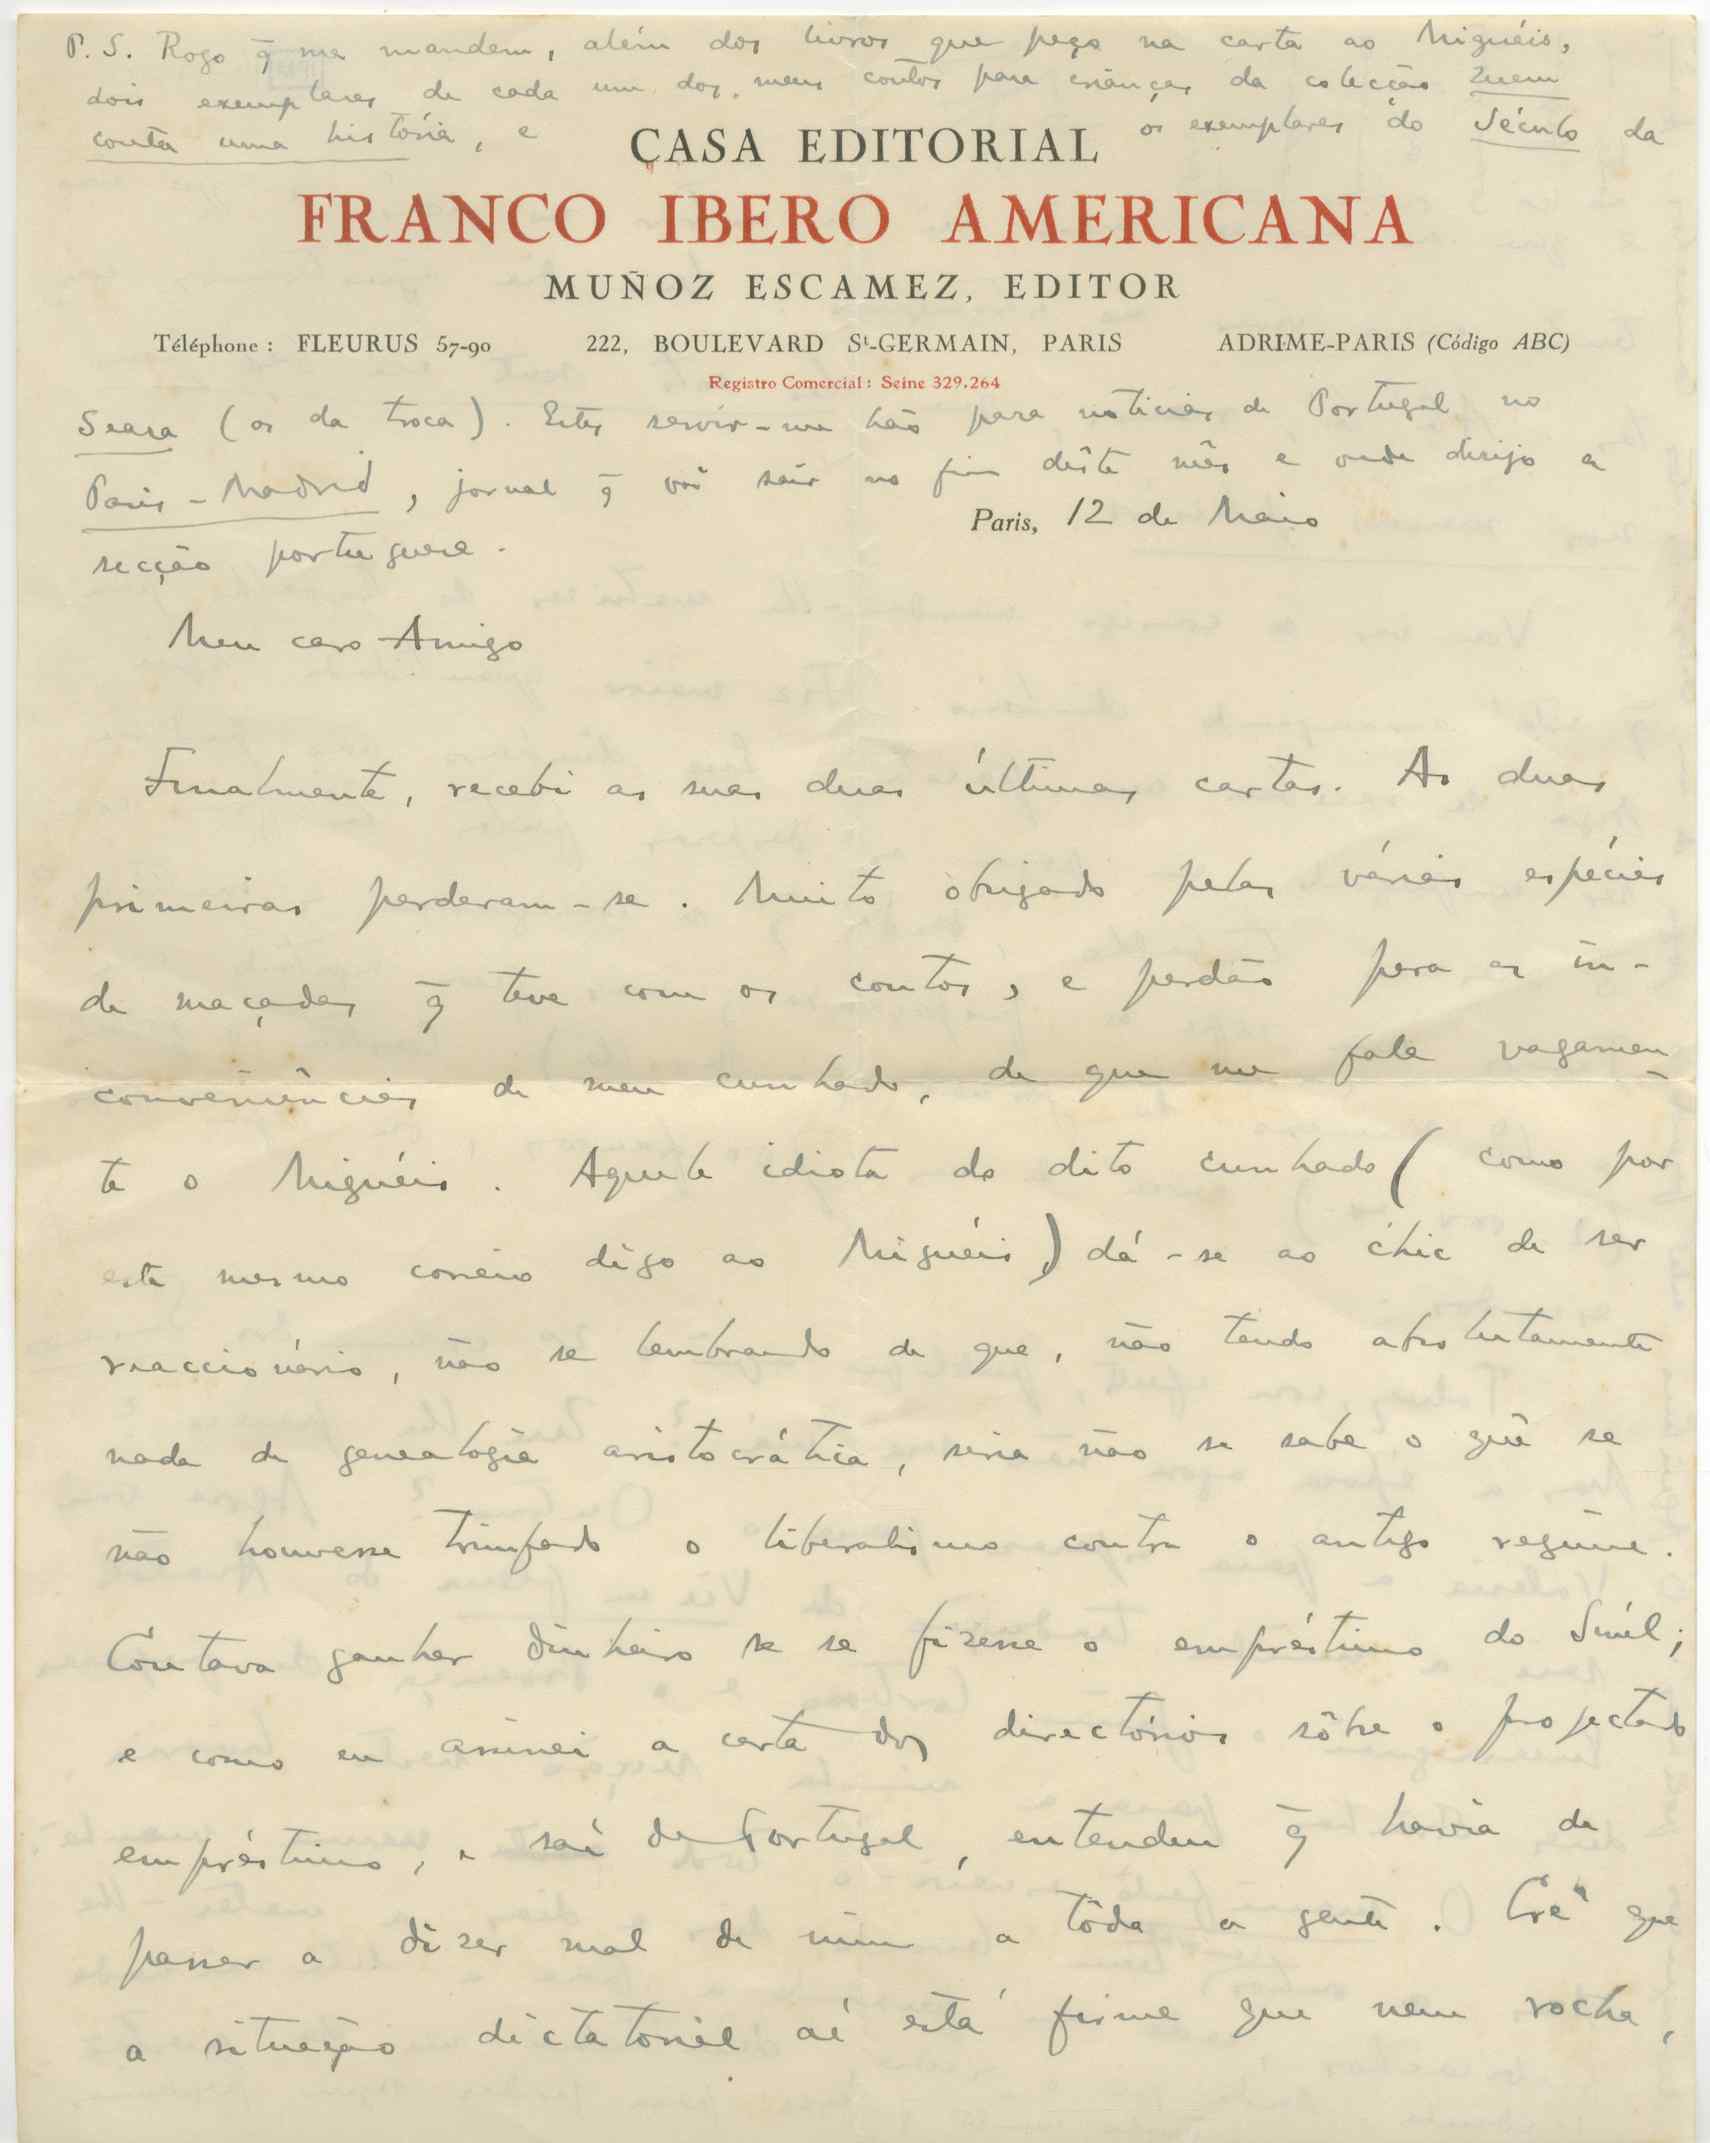 P. S. Rogo q̄ me mandem, além dos livros que peço na carta ao Miguéis,
dois exemplares de cada um dos meus contos para crianças da colecção Quem
conta uma história, e os exemplares do Século da
CASA EDITORIAL
FRANCO IBERO AMERICANA
MUÑOZ ESCAMEZ, EDITOR
Téléphone : FLEURUS 57-90 222, BOULEVARD St-GERMAIN, PARIS ADRIME-PARIS (Código ABC)
Registro Comercial : Seine 329.264
Seara (os da troca). Estes servir-me hão para notícias de Portugal no
Paris-Madrid, jornal q̄ vai sair no fim dêste mês e onde dirijo a
secção portuguesa.
Paris, 12 de Maio
Meu caro Amigo
Finalmente, recebi as suas duas últimas cartas. As duas
primeiras perderam-se. Muito obrigado pelas várias espécies
de maçadas q̄ teve com os contos, e perdão para as in-
conveniências de meu cunhado, de que me fala vagamen-
te o Miguéis. Aquele idiota do dito cunhado (como por
este mesmo correio digo ao Miguéis) dá-se ao chic de ser
reaccionário, não se lembrando de que, não tendo absolutamente
nada de genealogia aristocrática, seria não se sabe o quê se
não houvesse triunfado o liberalismo contra o antigo regime.
Contava ganhar dinheiro se se fizesse o empréstimo do Sinel;
e como eu assinei a carta dos directórios sôbre o projectado
empréstimo, e saí de Portugal, entendeu q̄ havia de
passar a dizer mal de mim a tôda a gente. Crê que
a situação dictatorial aí está firme que nem rocha,